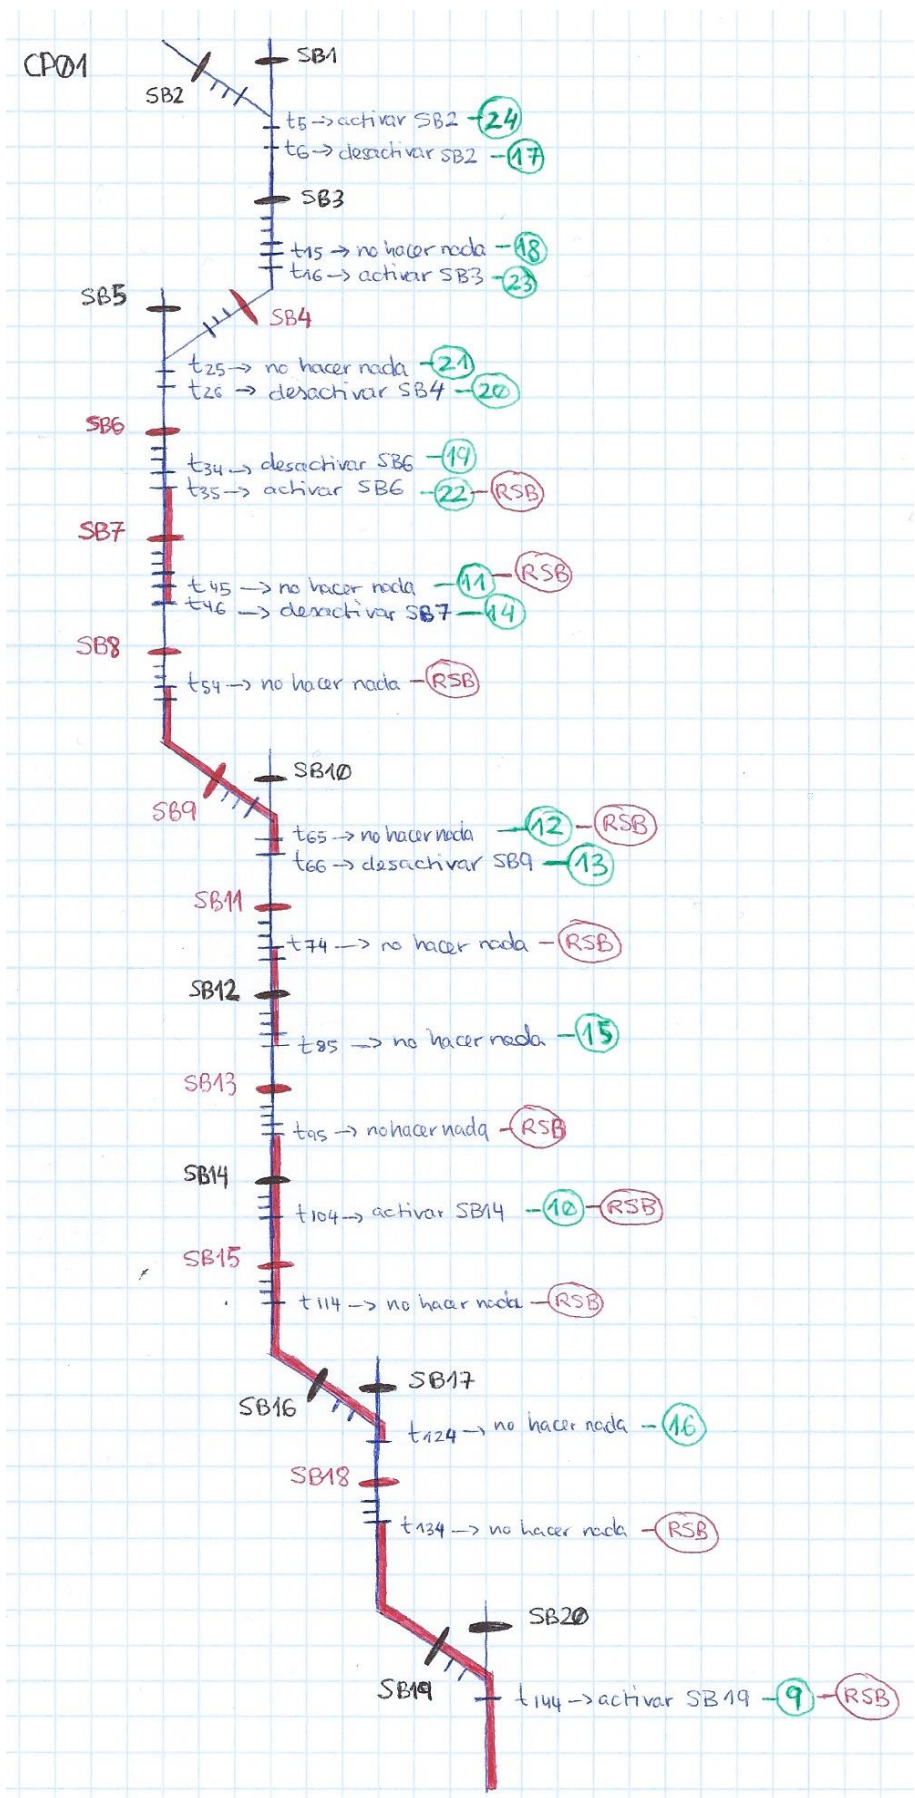 CPØ1
SB1
SB2
t5 → activar SB2 - 24
t6 → desactivar SB2 - 17
SB3
t15 → no hacer nada - 18
t16 → activar SB3 - 23
SB5
SB4
t25 → no hacer nada - 21
t26 → desactivar SB4 - 20
SB6
t34 → desactivar SB6 - 19
t35 → activar SB6 - 22 - RSB
SB7
t45 → no hacer nada - 11 - RSB
t46 → desactivar SB7 - 14
SB8
t54 → no hacer nada - RSB
SB10
SB9
t65 → no hacer nada - 12 - RSB
t66 → desactivar SB9 - 13
SB11
t74 → no hacer nada - RSB
SB12
t85 → no hacer nada - 15
SB13
t95 → no hacer nada - RSB
SB14
t104 → activar SB14 - 10 - RSB
SB15
t114 → no hacer nada - RSB
SB17
SB16
t124 → no hacer nada - 16
SB18
t134 → no hacer nada - RSB
SB20
SB19
t144 → activar SB19 - 9 - RSB